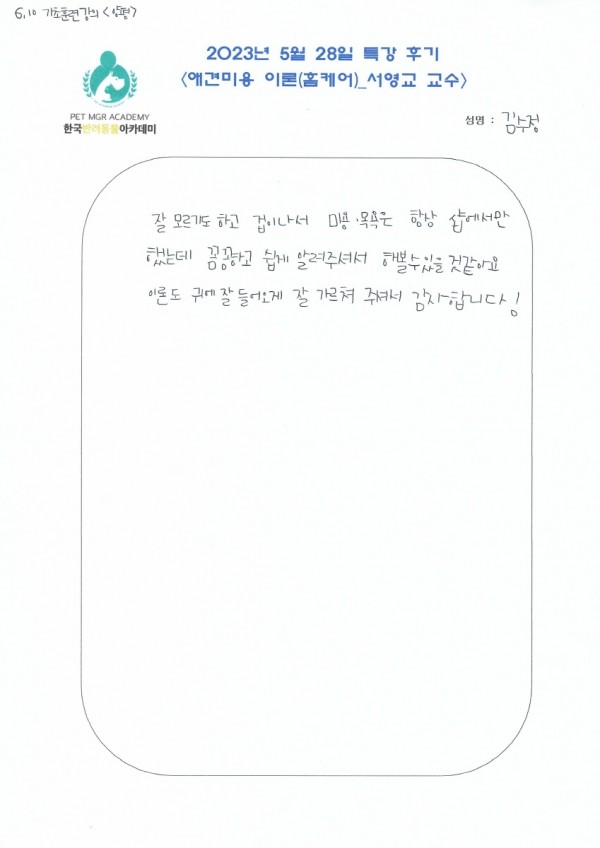 6.10 기초훈련강의 <양평>
2023년 5월 28일 특강 후기
<애견미용 이론(홈케어)_서영교 교수>
PET MGR ACADEMY
한국반려동물아카데미
성명 : 김수정
잘 모르기도 하고 겁이나서 미용·목욕은 항상 샵에서만
했는데 꼼꼼하고 쉽게 알려주셔서 해볼수있을것같아요
이론도 귀에 잘 들어오게 잘 가르쳐 주셔서 감사합니다!